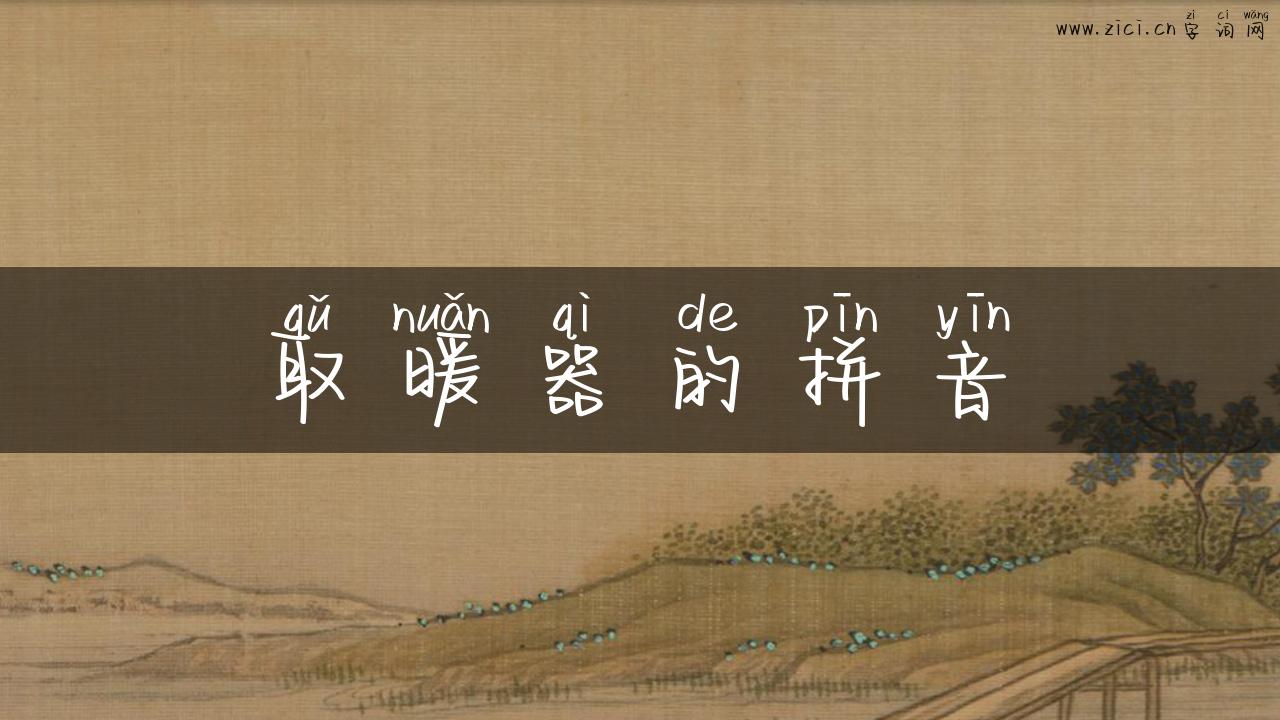 zì cí wǎng
www.zici.cn字词网
qǔ nuǎn qì de pīn yīn
取暖器的拼音